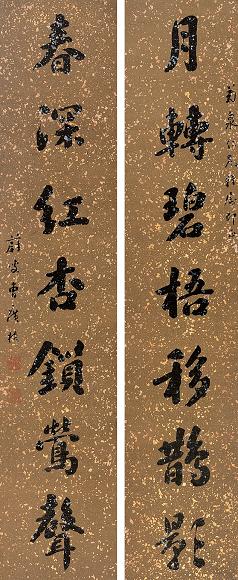 月轉碧梧移鵲影
春深紅杏鎖鶯聲